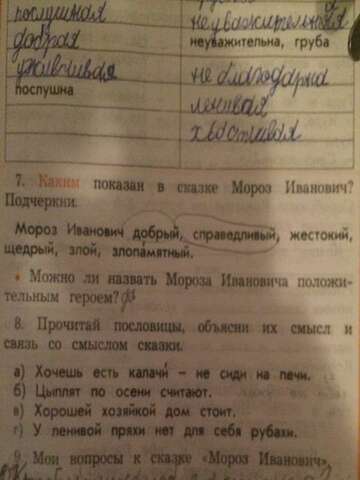 послушная неуважительная
добрая неуважительна, груба
уживчивая не благодарна
послушна
ленивая
хвастивая
7. Каким показан в сказке Мороз Иванович?
Подчеркни.
Мороз Иванович добрый, справедливый, жестокий,
щедрый, злой, злопамятный.
• Можно ли назвать Мороза Ивановича положи-
тельным героем? да
8. Прочитай пословицы, объясни их смысл и
связь со смыслом сказки.
а) Хочешь есть калачи – не сиди на печи.
б) Цыплят по осени считают.
в) Хорошей хозяйкой дом стоит.
г) У ленивой пряхи нет для себя рубахи.
9. Мои вопросы к сказке «Мороз Иванович».